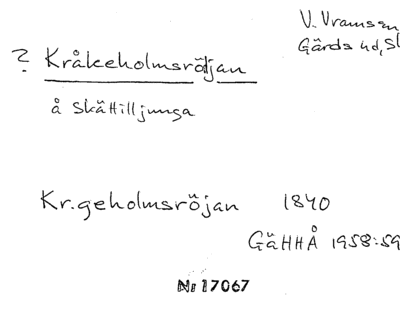 V. Vramsen
Gärds hd, Sk
? Kråkeholmsröjan
å Skättilljunga
Kr.geholmsröjan 1840
GäHHÅ 1958:59
Nr 17067